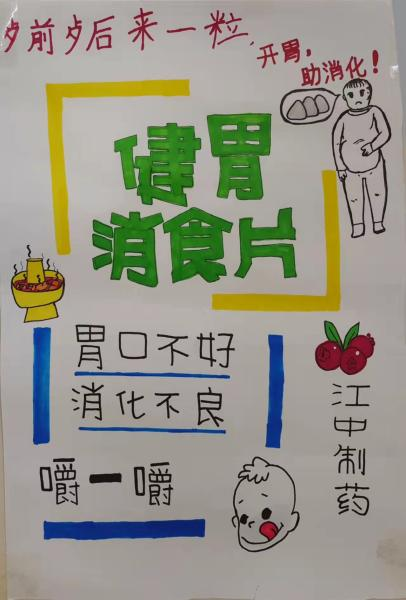 歺前歺后来一粒,
开胃,
助消化！
健胃
消食片
胃口不好
消化不良
嚼一嚼
江中制药